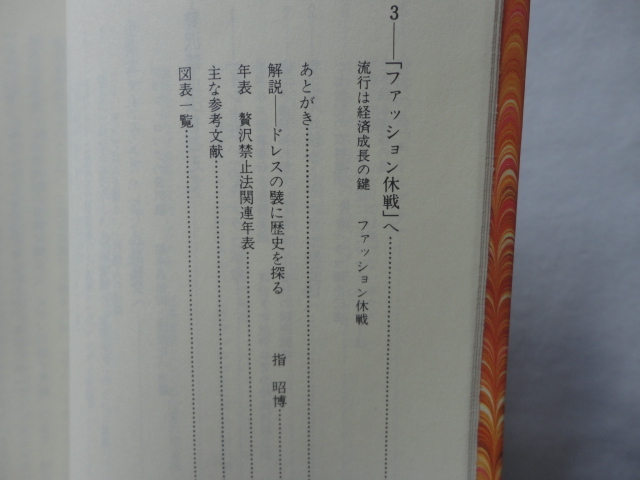 3――「ファッション休戦」へ
流行は経済成長の鍵　ファッション休戦
あとがき
解説――ドレスの襞に歴史を探る　指　昭博
年表　贅沢禁止法関連年表
主な参考文献
図表一覧